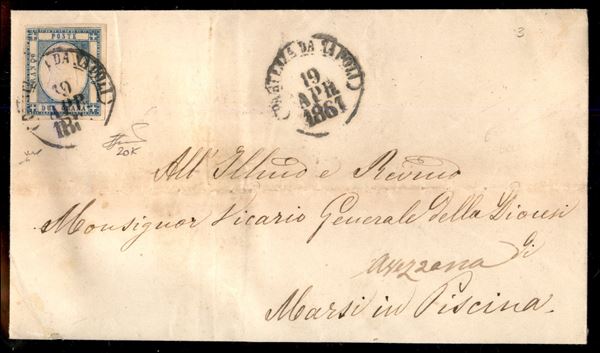 3
FRANCO
POSTE
BOLLO
DUE GRANA
DA NAPOLI
19
APR
PARTENZA DA NAPOLI
19
APR
1861
20K
All' Illmo e Revmo
Monsignor Vicario Generale della Diocesi
di
Avezzana
Marsi in Piscina.